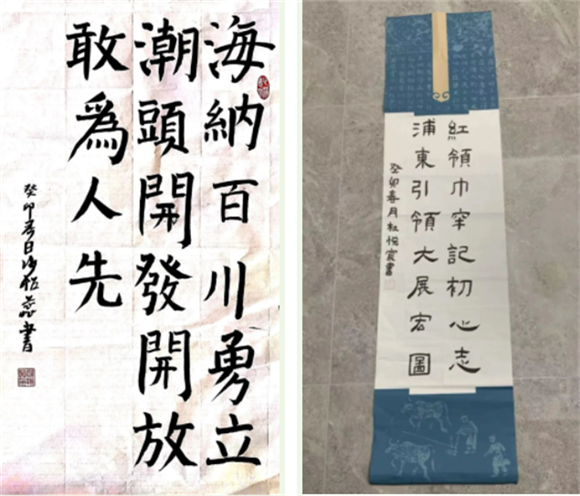 海納百川勇立
潮頭開發開放
敢為人先
癸卯春日沙恆蕊書
紅領巾牢記初心志
浦東引領大展宏圖
癸卯春月杜悅宸書